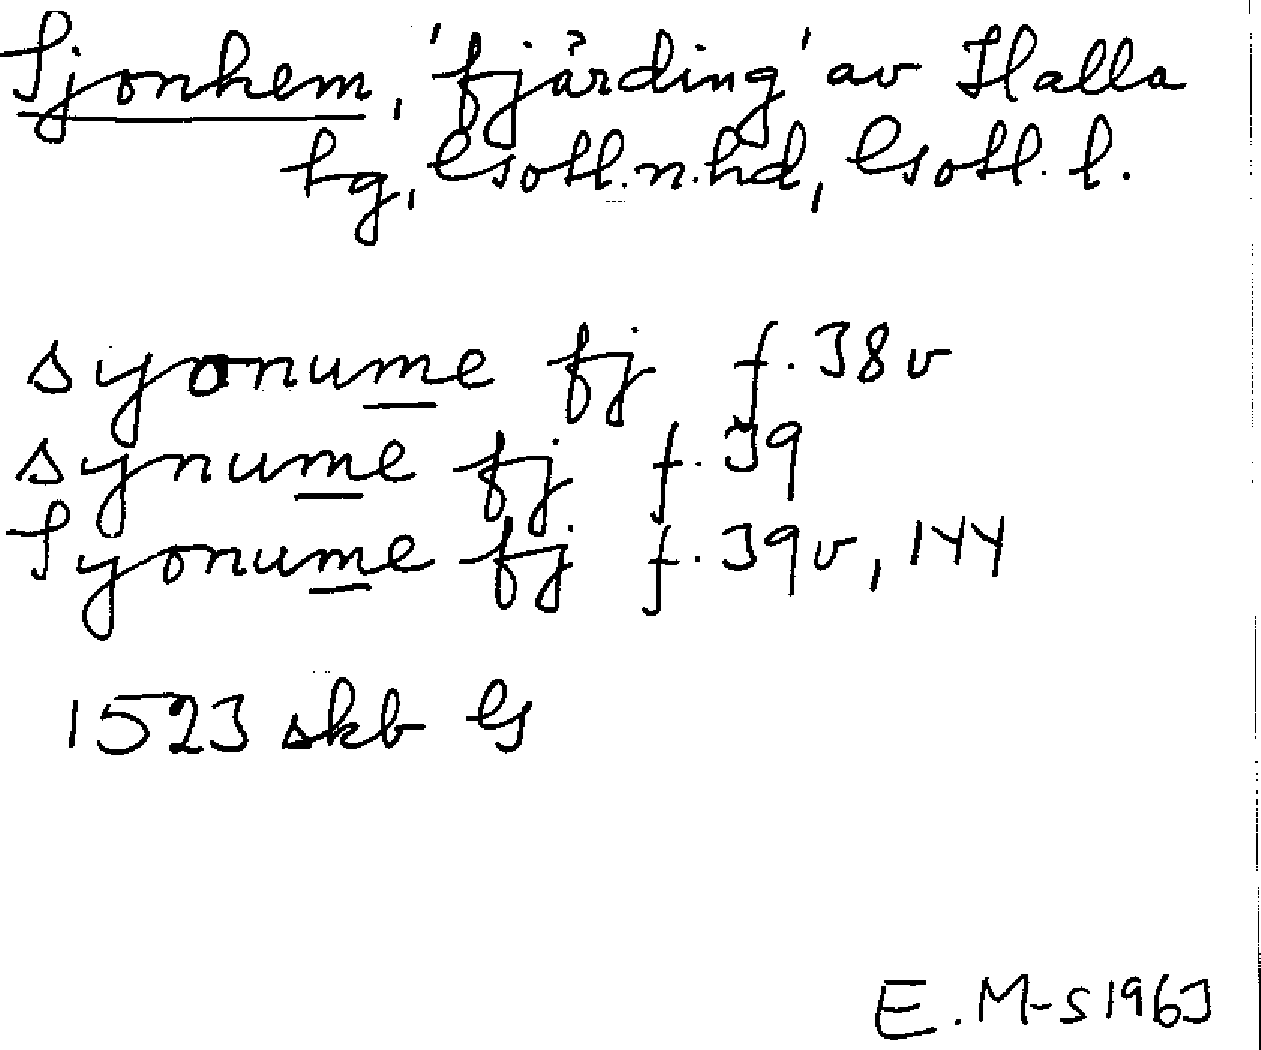 Sjonhem, 'fjärding' av Halla
tg, Gotl.n.hd, Gotl. l.
syonume fj f. 38v
synume fj f. 39
Syonume fj f. 39v, 144
1523 skb G
E.M-S 1963